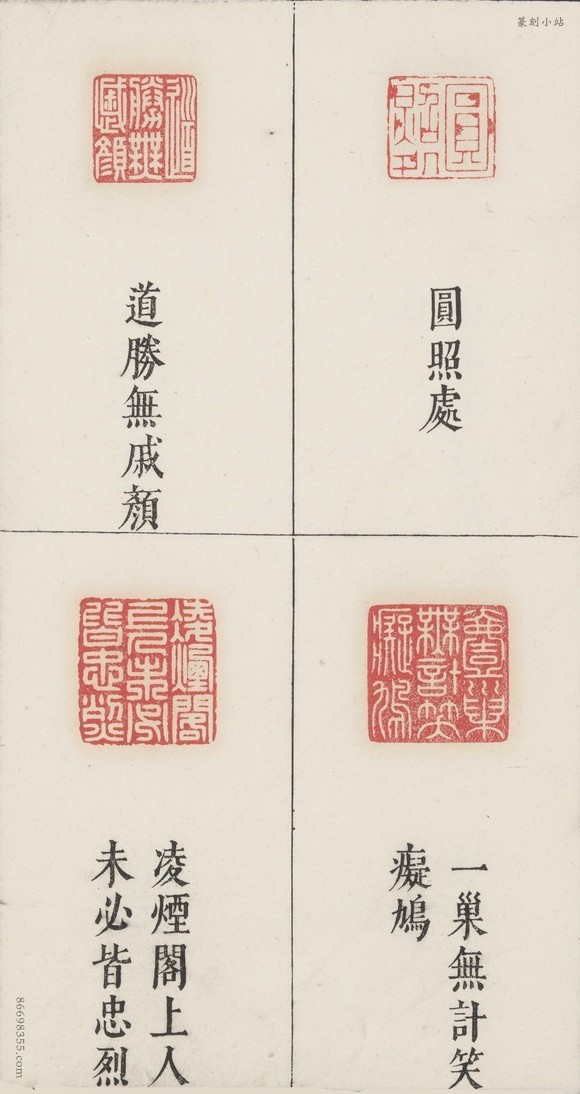 篆刻小站
圓照處
道勝無戚顏
一巢無計笑
癡鳩
凌煙閣上人
未必皆忠烈
86698355.com